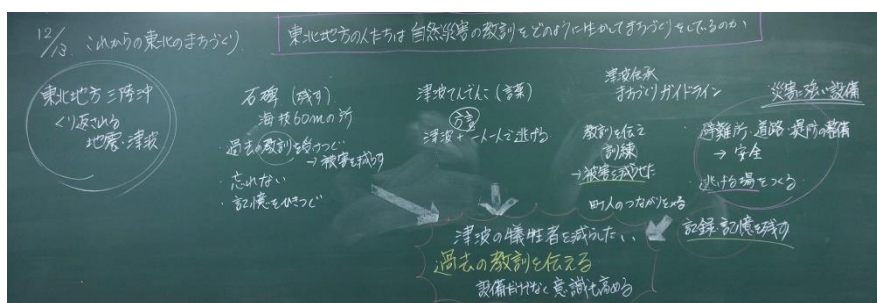 12/13 これからの東北のまちづくり
東北地方の人たちは自然災害の教訓をどのように生かしてまちづくりをしているのか
東北地方 三陸沖
くり返される
地震・津波
石碑（残す）
海抜60mの所
・過去の教訓を
→被害を減らす
・忘れない
・記憶をひきつぐ
津波てんでんこ（言葉）
方言
津波+一人一人で逃げる
津波伝承
まちづくりガイドライン
教訓を伝え
訓練
→被害を減らせた
町人のつながりを
災害に強い設備
・避難所・道路・堤防の整備
→安全
・逃げる場をつくる
記録・記憶を残す
津波の犠牲者を減らしたい
過去の教訓を伝える
設備だけなく意識も高める